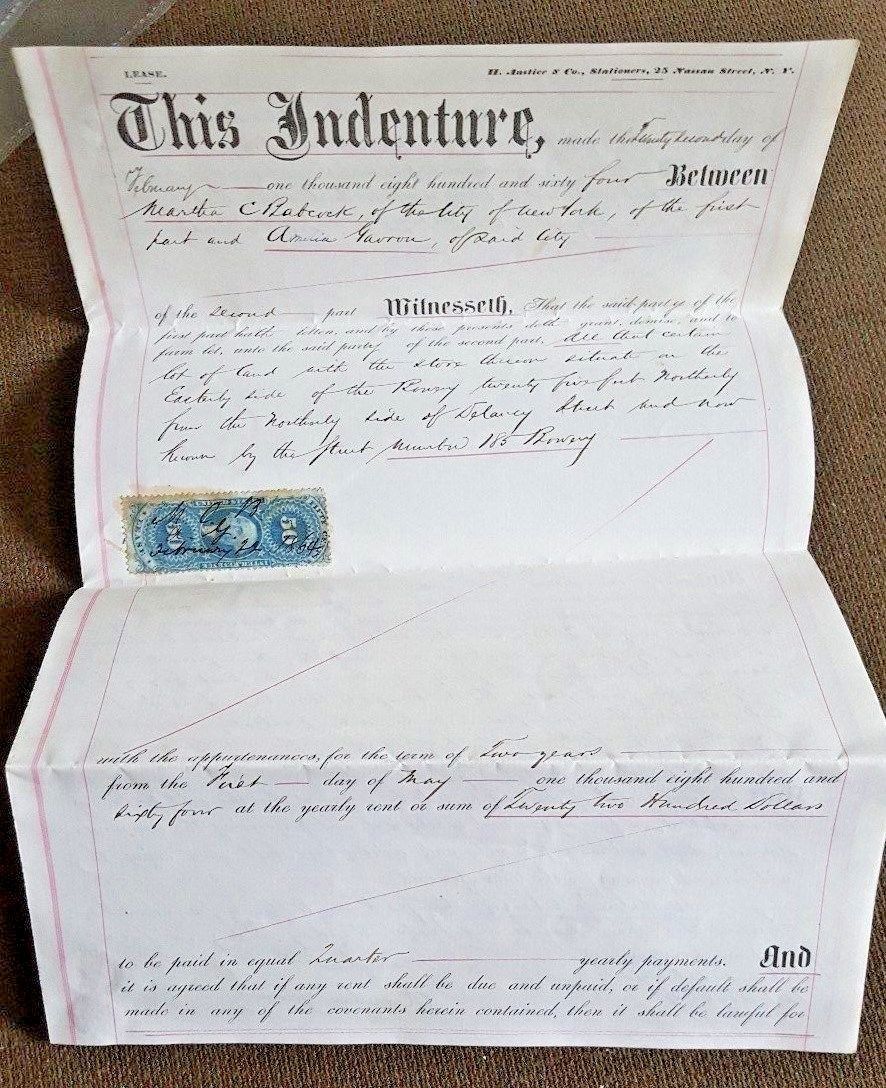 LEASE.
H. Anstice & Co., Stationers, 25 Nassau Street, N. Y.
This Indenture, made the Twenty second day of
February one thousand eight hundred and sixty four Between
Martha C Babcock, of the City of New York, of the first
part and of said City
of the second part Witnesseth, That the said party of the
first part hath letten, and by these presents doth grant, demise, and to
farm let, unto the said party of the second part, all that certain
lot of land with the store thereon situate on the
Easterly side of the Bowery twenty five feet Northerly
from the Northerly side of Delancy Street and now
known by the Street Number 185 Bowery
50
M. C. B.
February 22 1864
with the appurtenances, for the term of Two years
from the First day of May one thousand eight hundred and
sixty four at the yearly rent or sum of Twenty two Hundred Dollars
to be paid in equal Quarter yearly payments. And
it is agreed that if any rent shall be due and unpaid, or if default shall be
made in any of the covenants herein contained, then it shall be lawful for